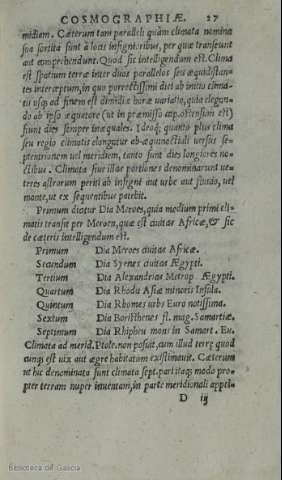 COSMOGRAPHIÆ. 27
midiam. Cæterum tam paralleli quàm climata nomina
sua sortita sunt à locis insignioribus, per quæ transeunt
aut comprehendunt. Quod sic intelligendum est. Clima
est spatium terræ inter duos parallelos seu æquidistan-
tes interceptum, in quo porrectissimi diei ab initio clima-
tis usq; ad finem est dimidiæ horæ variatio, quia elegan-
do ab ipso æquatore (ut in præmisso cap. ostensum est)
fiunt dies semper inæquales. Ideoq; quanto plus clima
seu regio climatis elongatur ab æquinoctiali versus se-
ptentrionem vel meridiem, tanto sunt dies longiores no-
ctibus. Climata siue illae portiones denominarunt ue-
teres astrorum periti ab insigni aut urbe aut fluuio, uel
monte, ut ex sequentibus patebit.
Primum dicitur Dia Meroes, quia medium primi cli-
matis transit per Meroen, quæ est ciuitas Africæ, & sic
de cæteris intelligendum est.
Primum Dia Meroes ciuitas Africæ.
Secundum Dia Syenes ciuitas Ægypti.
Tertium Dia Alexandrias Metrop. Ægypti.
Quartum Dia Rhodu Asiæ minoris Insula.
Quintum Dia Rhomes urbs Euro notissima.
Sextum Dia Boristhenes fl. mag. Samartiæ.
Septimum Dia Rhipheu mons in Samart. Eu.
Climata ad merid. Ptole. non posuit, cum illud terræ quod
cunq; est uix aut ægre habitatum existimauit. Cæterum
ut hic denominata sunt climata sept. pari itaq; modo pro-
pter terram nuper inuentam, in parte meridionali appel-
D iij
Biblioteca de Galicia